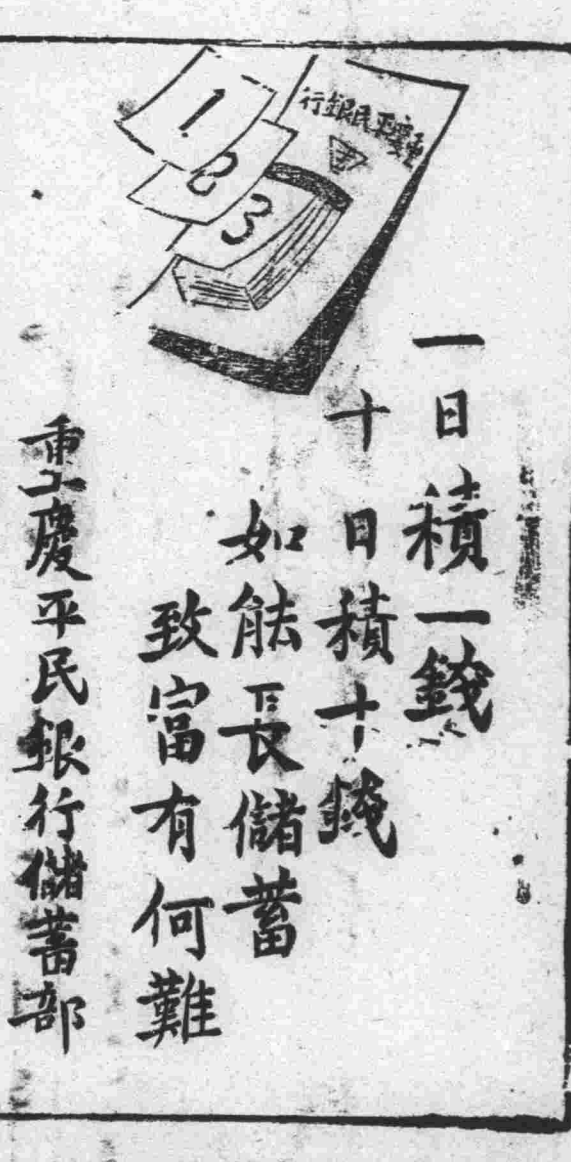 重慶平民銀行
1
2
3
一日積一錢
十日積十錢
如能長儲蓄
致富有何難
重慶平民銀行儲蓄部